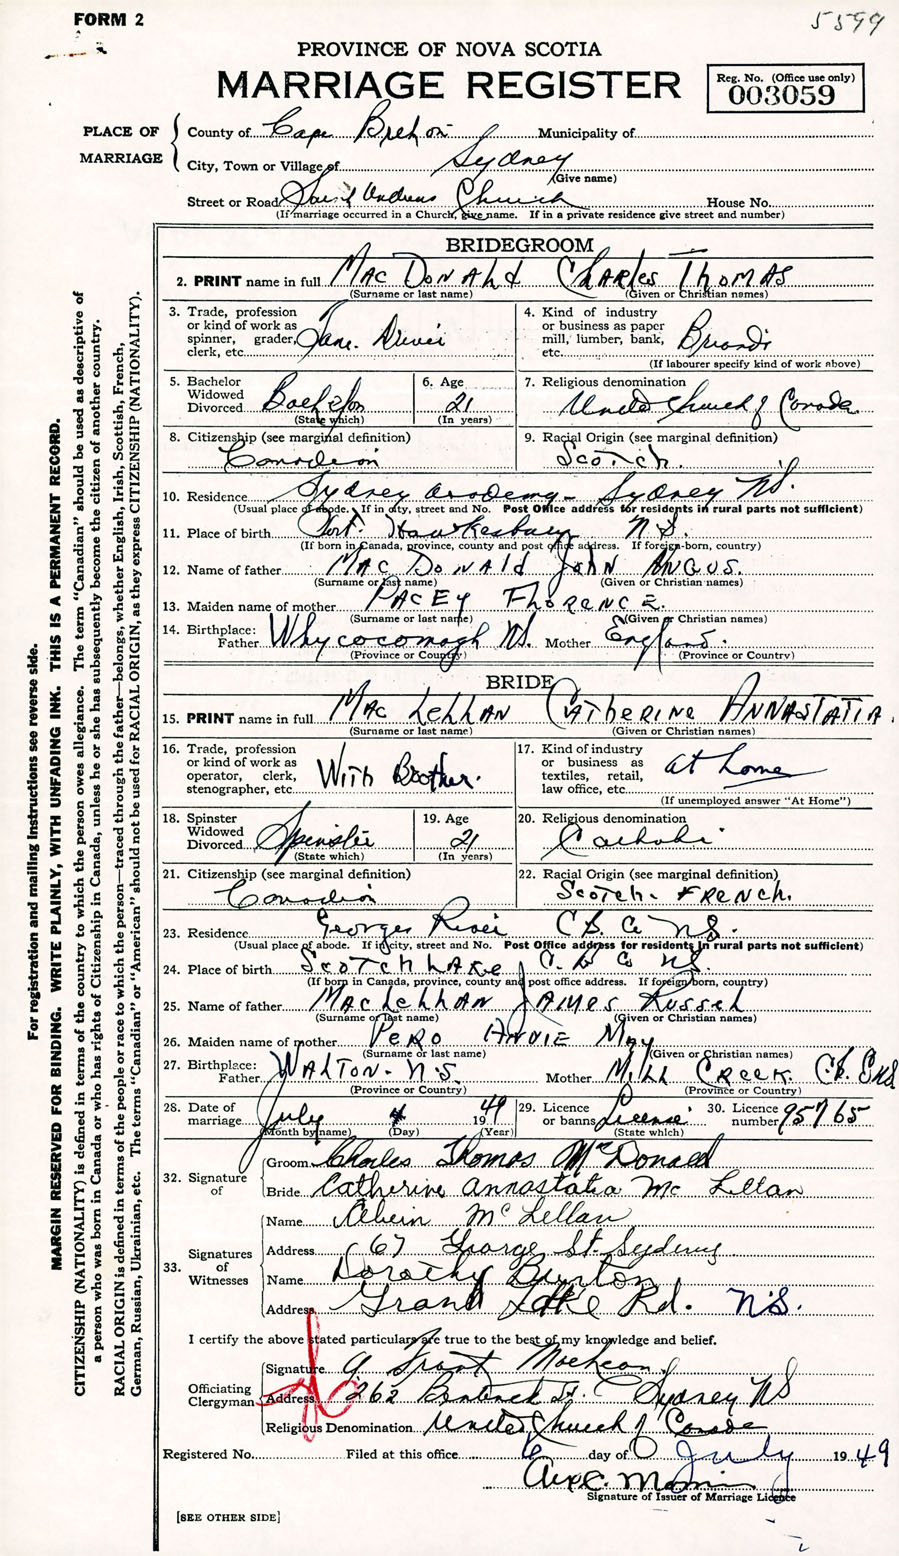 FORM 2
5599
PROVINCE OF NOVA SCOTIA
MARRIAGE REGISTER
Reg. No. (Office use only)
003059
PLACE OF MARRIAGE
County of Cape Breton Municipality of
City, Town or Village of Sydney
(Give name)
Street or Road Andrews Church House No.
(If marriage occurred in a Church, give name. If in a private residence give street and number)
BRIDEGROOM
2. PRINT name in full MacDonald Charles Thomas
(Surname or last name) (Given or Christian names)
3. Trade, profession or kind of work as spinner, grader, clerk, etc.
4. Kind of industry or business as paper mill, lumber, bank, etc.
(If labourer specify kind of work above)
5. Bachelor Widowed Divorced Bachelor
(State which)
6. Age 21
(In years)
7. Religious denomination United Church of Canada
8. Citizenship (see marginal definition) Canadian
9. Racial Origin (see marginal definition) Scotch.
10. Residence Sydney Academy - Sydney NS.
(Usual place of abode. If in city, street and No. Post Office address for residents in rural parts not sufficient)
11. Place of birth Port Hawkesbury N.S.
(If born in Canada, province, county and post office address. If foreign-born, country)
12. Name of father MacDonald John Angus.
(Surname or last name) (Given or Christian names)
13. Maiden name of mother Pacey Florence.
(Surname or last name) (Given or Christian names)
14. Birthplace: Father Whycocomagh NS. Mother England.
(Province or Country) (Province or Country)
BRIDE
15. PRINT name in full MacLellan Catherine Annastatia
(Surname or last name) (Given or Christian names)
16. Trade, profession or kind of work as operator, clerk, stenographer, etc. With Brother.
17. Kind of industry or business as textiles, retail, law office, etc. at home
(If unemployed answer "At Home")
18. Spinster Widowed Divorced Spinster
(State which)
19. Age 21
(In years)
20. Religious denomination Catholic
21. Citizenship (see marginal definition) Canadian
22. Racial Origin (see marginal definition) Scotch - French.
23. Residence Georges River C.B. Co NS.
(Usual place of abode. If in city, street and No. Post Office address for residents in rural parts not sufficient)
24. Place of birth Scotch Lake C.B Co NS.
(If born in Canada, province, county and post office address. If foreign born, country)
25. Name of father MacLellan James Russel
(Surname or last name) (Given or Christian names)
26. Maiden name of mother Pero Annie May
(Surname or last name) (Given or Christian names)
27. Birthplace: Father Walton - N.S. Mother Mill Creek. CB.
(Province or Country) (Province or Country)
28. Date of marriage July 4 1949
(Month by name) (Day) (Year)
29. Licence or banns License
(State which)
30. Licence number 95765
32. Signature of
Groom Charles Thomas McDonald
Bride Catherine Annastatia McLellan
33. Signatures of Witnesses
Name McLellan
Address 67 George St. Sydney
Name Dorothy Burton
Address Grand Lake Rd. N.S.
I certify the above stated particulars are true to the best of my knowledge and belief.
Officiating Clergyman
Signature A Grant MacLean
Address 262 Bentinck St. Sydney NS
Religious Denomination United Church of Canada
Registered No. Filed at this office 6 day of July 1949
Signature of Issuer of Marriage Licence
[SEE OTHER SIDE]
For registration and mailing instructions see reverse side.
MARGIN RESERVED FOR BINDING. WRITE PLAINLY, WITH UNFADING INK. THIS IS A PERMANENT RECORD.
CITIZENSHIP (NATIONALITY) is defined in terms of the country to which the person owes allegiance. The term "Canadian" should be used as descriptive of
a person who was born in Canada or who has rights of Citizenship in Canada, unless he or she has subsequently become the citizen of another country.
RACIAL ORIGIN is defined in terms of the people or race to which the person—traced through the father—belongs, whether English, Irish, Scottish, French,
German, Russian, Ukrainian, etc. The terms "Canadian" or "American" should not be used for RACIAL ORIGIN, as they express CITIZENSHIP (NATIONALITY).